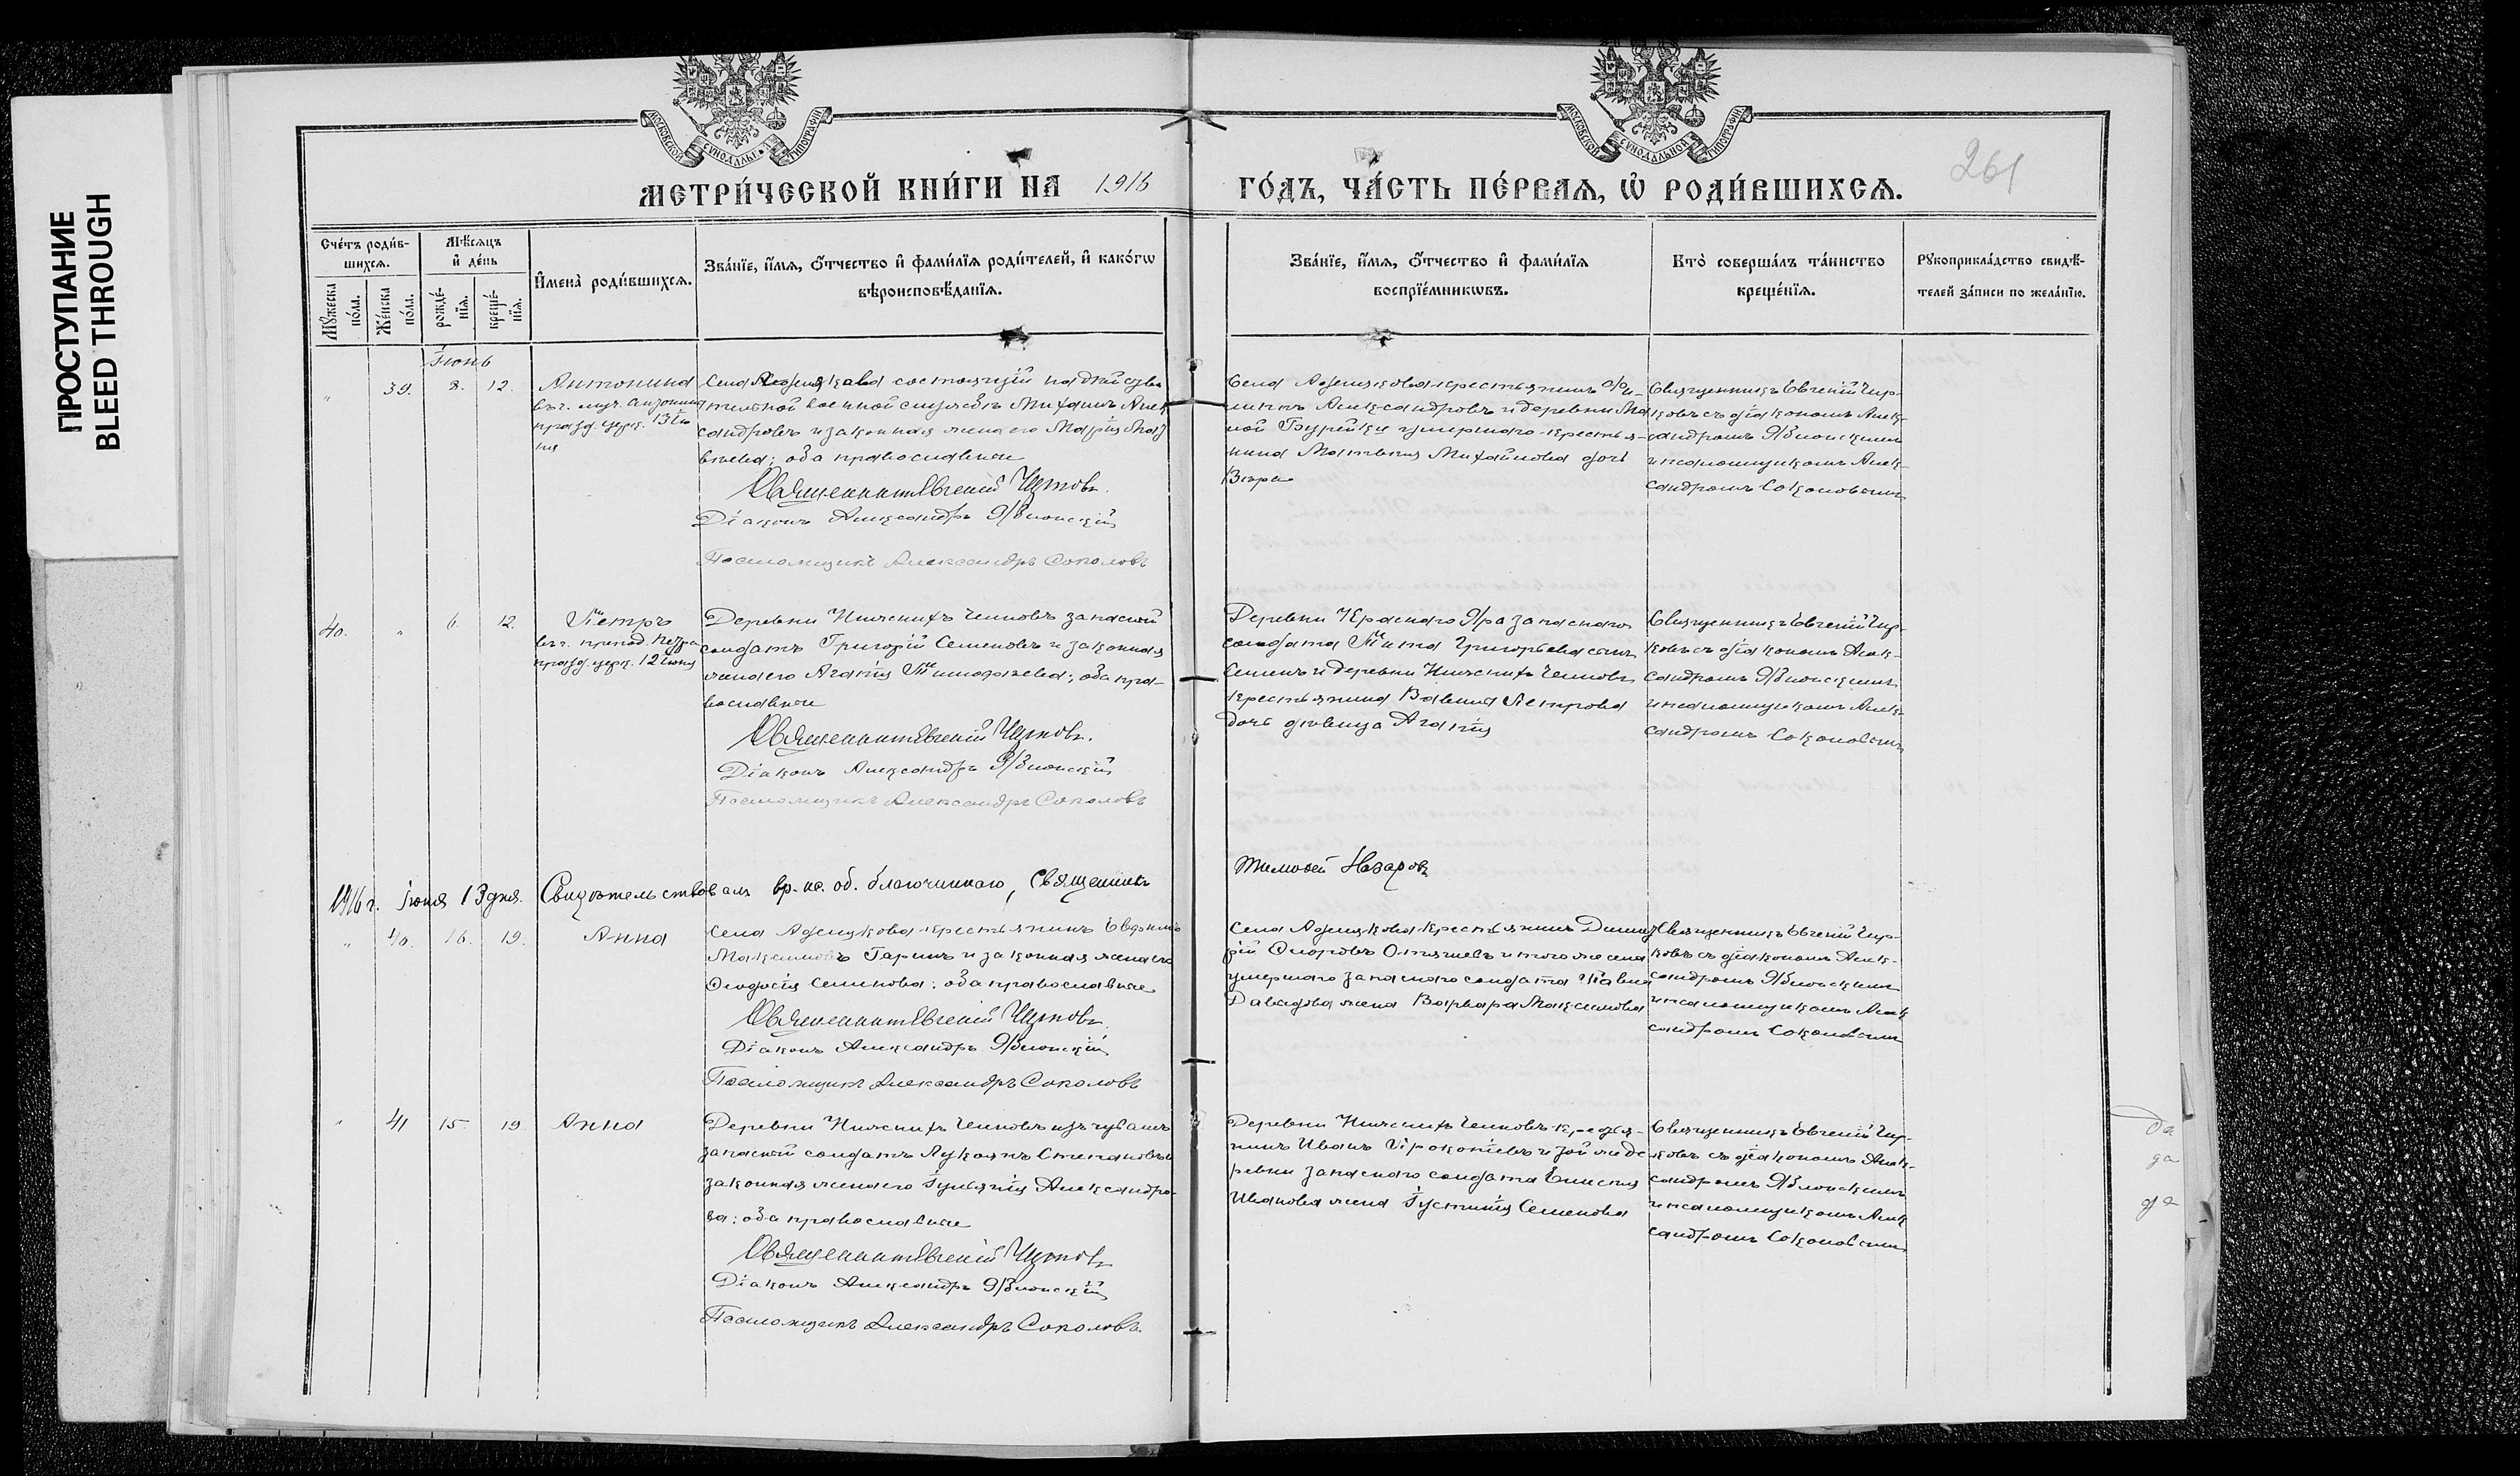 ПРОСТУПАНИЕ
BLEED THROUGH
МОСКОВСКОЙ СѴНОДАЛЬНОЙ ТИПОГРАФІИ
МОСКОВСКОЙ СѴНОДАЛЬНОЙ ТИПОГРАФІИ
261
МЕТРИ́ЧЕСКОЙ КНИ́ГИ НА 1916 ГО́ДЪ, ЧА́СТЬ ПЕ́РВАЯ, Ѡ РОДИ́ВШИХСЯ.
Сче́тъ роди́в-
шихся.
Мꙋ́жеска
по́ла.
Же́нска
по́ла.
Мѣ́сяцъ
и҆ де́нь
рожде́-
нїя.
креще́-
нїя.
И҆мена̀ роди́вшихся.
Зва́нїе, и҆́мя, ѻ҆́тчество и҆ фами́лїя роди́телей, и҆ како́гѡ
вѣроисповѣ́данїя.
Зва́нїе, и҆́мя, ѻ҆́тчество и҆ фами́лїя
воспрїе́мникѡвъ.
Кто̀ соверша́лъ та́инство
креще́нїя.
Рꙋкоприкла́дство свидѣ́-
телей за́писи по жела́нїю.
Іюнь
39. 8. 12. Антонина
въ ч. муч. Антонины
празд. церк. 13 Iю
ня
состоящій на дѣйстви
тельной военной службѣ Михаилъ Алек
сандровъ и законная жена его Марія Мат
вѣева; оба православные
Священникъ Евгеній
Діаконъ Александръ Яблонскій
Псаломщикъ Александръ Соколовъ
крестьянинъ
Александровъ и деревни Ма
лой умершаго крестья-
нина Матвея Михайлова дочь
Вера
Священникъ Евгеній Чир-
ковъ съ діакономъ Алек-
сандромъ Яблонскимъ
и псаломщикомъ Алек-
сандромъ Соколовымъ
40. " 6. 12. Петръ
въ ч. препод. Петра
празд. церк. 12 Iюня
Деревни Нижнихъ Челновъ запасной
солдатъ Григорій Семеновъ и законная
жена его Агапія Тимофеева; оба пра-
вославные
Священникъ Евгеній Чирковъ.
Діаконъ Александръ Яблонскій
Псаломщикъ Александръ Соколовъ
Деревни Краснаго Яра запаснаго
солдата Тита Григорьева сынъ
Семенъ и деревни Нижнихъ Челновъ
крестьянина Вавила Петрова
дочь девица Агапія
Священникъ Евгеній Чир-
ковъ съ діакономъ Алек-
сандромъ Яблонскимъ
и псаломщикомъ Алек-
сандромъ Соколовымъ
1916 г. іюня 13 дня. Свидѣтельствовалъ вр. ис. об. благочиннаго, Священникъ Тимофей Назаровъ
" 40. 16. 19. Анна
крестьянинъ Евфимій
Максимовъ Гаринъ и законная жена его
Феодосія Семенова; оба православные
Священникъ Евгеній Чирковъ
Діаконъ Александръ Яблонскій
Псаломщикъ Александръ Соколовъ
крестьянинъ Димит
рій и того же села
умершаго запаснаго солдата Павла
Давидова жена Варвара Максимова
Священникъ Евгеній Чир-
ковъ съ діакономъ Алек-
сандромъ Яблонскимъ
и псаломщикомъ Алек
сандромъ Соколовымъ
" 41 15. 19. Анна
Деревни Нижнихъ Челновъ изъ чувашъ
запасной солдатъ Лукоянъ Степановъ и
законная жена его Іуліанія Александро-
ва; оба православные
Священникъ Евгеній Чирковъ
Діаконъ Александръ Яблонскій
Псаломщикъ Александръ Соколовъ.
Деревни Нижнихъ Челновъ крестья-
нинъ Иванъ Прокопіевъ и той же де
ревни запаснаго солдата Елисея
Иванова жена Іустинія Семенова
Священникъ Евгеній Чир-
ковъ съ діакономъ Алек-
сандромъ Яблонскимъ
и псаломщикомъ Алек
сандромъ Соколовымъ
да
да
да